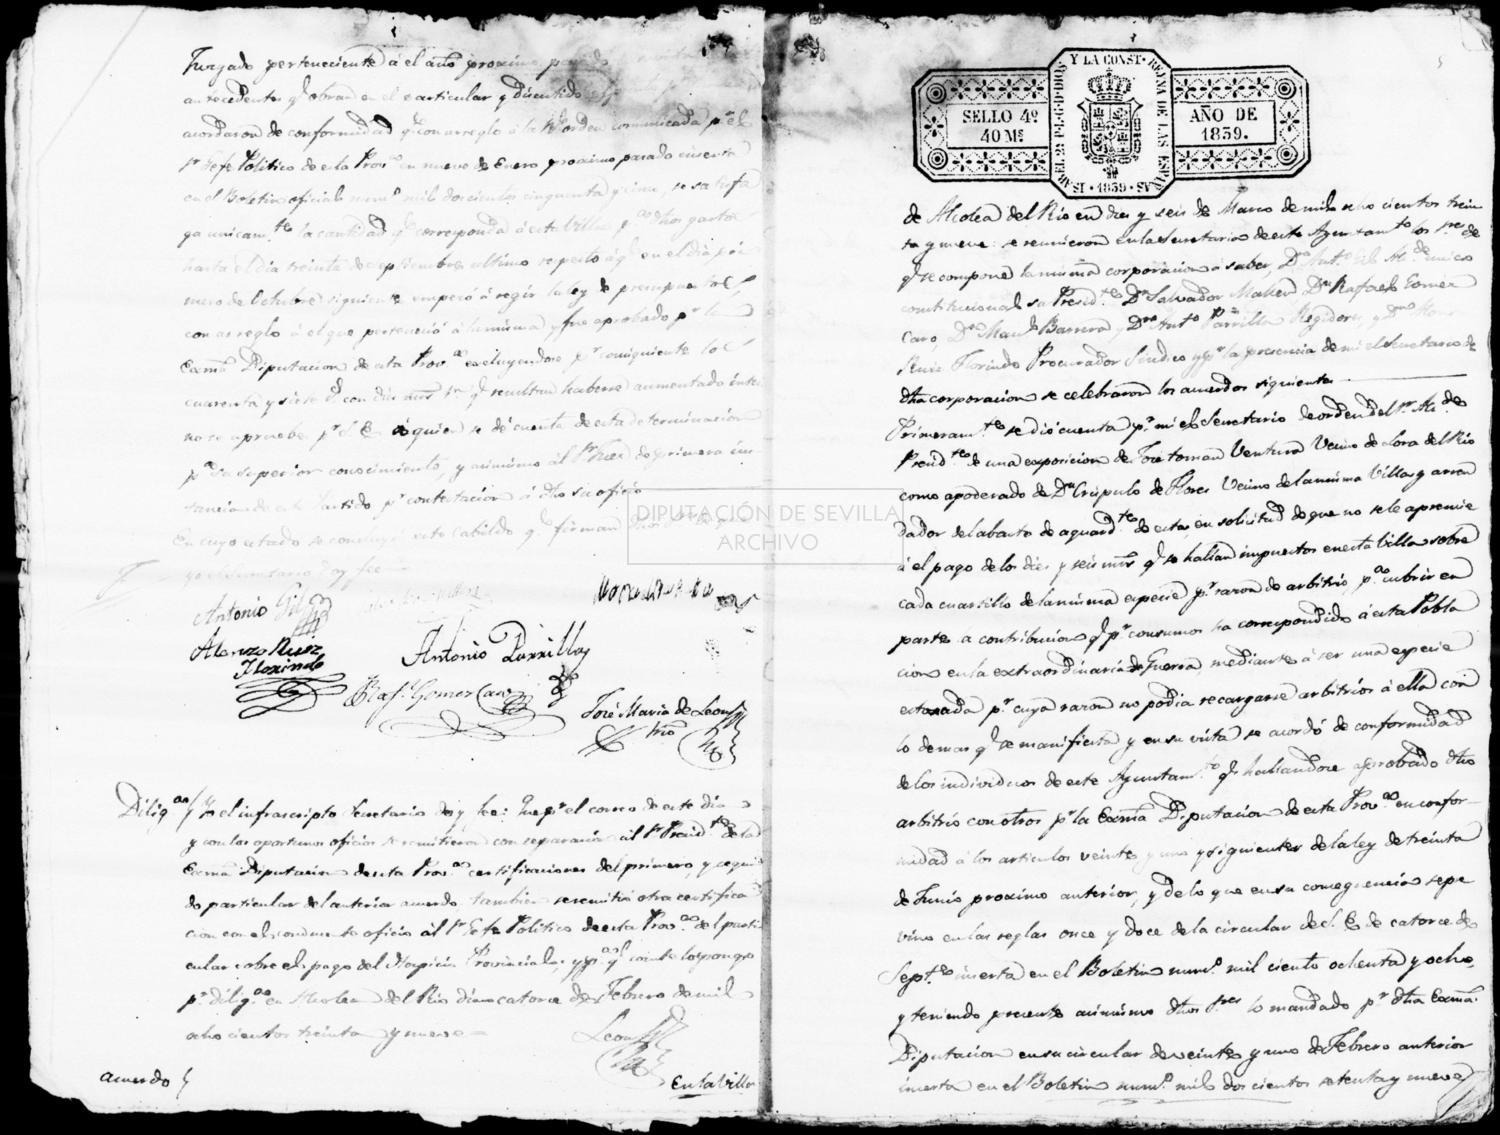 Juzgado perteneciente á el año proximo pasado
antecedentes q.e obran en el particular y discutido
acordaron de conformidad q.e con arreglo á la R.l orden comunicada p.r el
S.r Gefe Politico de esta Prov.a en nueve de Enero proximo pasado inserta
en el Boletin oficial num.o mil doscientos cinquenta y cinco, se satisfa
ga unicam.te la cantidad q.e corresponda á esta Villa p.a dhos gastos
hasta el dia treinta de septiembre ultimo respecto á q.e en el dia pri
mero de Octubre siguiente empezó á regir la ley de presupuestos
con arreglo á el que perteneció á la misma y fue aprobado p.r la
Exma Diputacion de esta Prov.a excluyendose p.r consiguiente los
cuarenta y siete con dies mrs q.e resultan haberse aumentado inter
no se apruebe p.r S. E. á quien se dé cuenta de esta determinacion
p.a su superior conocimiento, y asimismo al S.r Juez de primera ins
tancia de este Partido p.r contestacion á dho su oficio
En cuyo estado se concluyó este Cabildo q.e firman
yo el Secretario doy fee
Antonio Gil
Alonzo Ruiz
Florindo
Antonio Parrilla
Raf.l Gomez Caro
José Maria de Leon
Srio
Dilig.a Yo el infrascripto Secretario doy fee: Que p.r el correo de este dia
y con los oportunos oficios se remitieron con separacion al S.r Presid.te de la
Exma Diputacion de esta Prov.a certificaciones del primero, y segun
do particular del anterior acuerdo, tambien se remitió otra certifica
cion con el conducente oficio al S.r Gefe Politico de esta Prov.a del parti
cular sobre el pago del Hospicio Provincial; y p.a q.e conste lo pongo
p.r dilig.a en Alcolea del Rio dia catorce de Febrero de mil
ocho cientos treinta y nueve
Leon
acuerdo
En la Villa
DIPUTACIÓN DE SEVILLA
ARCHIVO
SELLO 4º
40 Ms
ISABEL 2ª P. L. G. D. DIOS Y LA CONST. REYNA DE LAS ESPAÑAS
1839
AÑO DE
1839.
5
de Alcolea del Rio en dies y seis de Marzo de mil ocho cientos trein
ta y nueve: se reunieron en la Secretaria de este Ayuntam.to los S.res de
q.e se compone la misma corporacion á saber, D.n Ant.o Gil Alcalde unico
constitucional su Presid.te D.n Salvador D.n Rafael Gomez
Caro D.n Man.l Barrera, y D.n Ant.o Parrilla Regidores, y D.n Alonso
Ruiz Florindo Procurador Sindico y p.r la presencia de mi el Secretario de
dha corporacion se celebraron los acuerdos siguientes
Primeram.te se dió cuenta p.r mi el Secretario de orden del S.r Alcalde
Presid.te de una exposicion de José Ventura Vecino de Lora del Rio
como apoderado de D.n Crispulo de Flores Vecino de la misma Villa y arren
dador del abasto de aguard.te de esta, en solicitud de que no se le apremie
á el pago de los dies y seis mrs q.e se hallan impuestos en esta Villa sobre
cada cuartillo de la misma especie p.r razon de arbitrio, p.a cubrir en
parte la contribucion q.e p.r consumos ha correspondido á esta Pobla
cion en la extraordinaria de Guerra, mediante á ser una especie
estancada p.r cuya razon no podia recargarse arbitrios á ella con
lo demas q.e se manifiesta y en su vista se acordó de conformidad
de los individuos de este Ayuntam.to q.e hallandose aprobado dho
arbitrio con otros p.r la Exma Diputacion de esta Prov.a en confor-
midad á los articulos veinte y uno y siguientes de la ley de treinta
de Junio proximo anterior, y de lo que en su consequencia se pre
vino en las reglas once y doce de la circular de S. E. de catorce de
Sept.e inserta en el Boletin num.o mil ciento ochenta y ocho,
y teniendo presente asimismo dhos S.res lo mandado p.r dha Exma
Diputacion en su circular de veinte y uno de Febrero anterior
inserta en el Boletin num.o mil dos cientos setenta y nueve